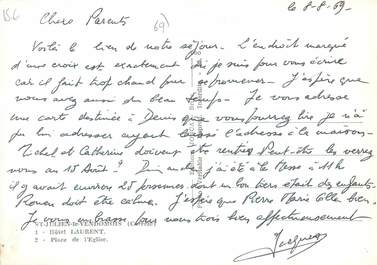 156
le 8-8-69-
Chers Parents
69)
Voilà le lieu de notre séjour. L'endroit marqué
d'une croix est exactement où je suis pour vous écrire
car il fait trop chaud pour se promener. J'espère que
vous avez aussi du beau temps. Je vous adresse
une carte destinée à Denis que vous pourrez lire je n'ai
pu lui adresser ayant laissé l'adresse à la maison.
Michel et Catherine doivent être rentrés Peut-être les verrez
vous au 15 Août? Dimanche j'ai été à la Messe à 11h
il y avait environ 20 personnes dont un bon tiers était des enfants.
Rouen doit être calme. J'espère que Pierre Marie va bien.
Je vous embrasse pour nous trois bien affectueusement
Jacques
ST-JULIEN-le-VENDOMOIS (Corrèze)
1 - Hôtel LAURENT.
2 - Place de l'Eglise.